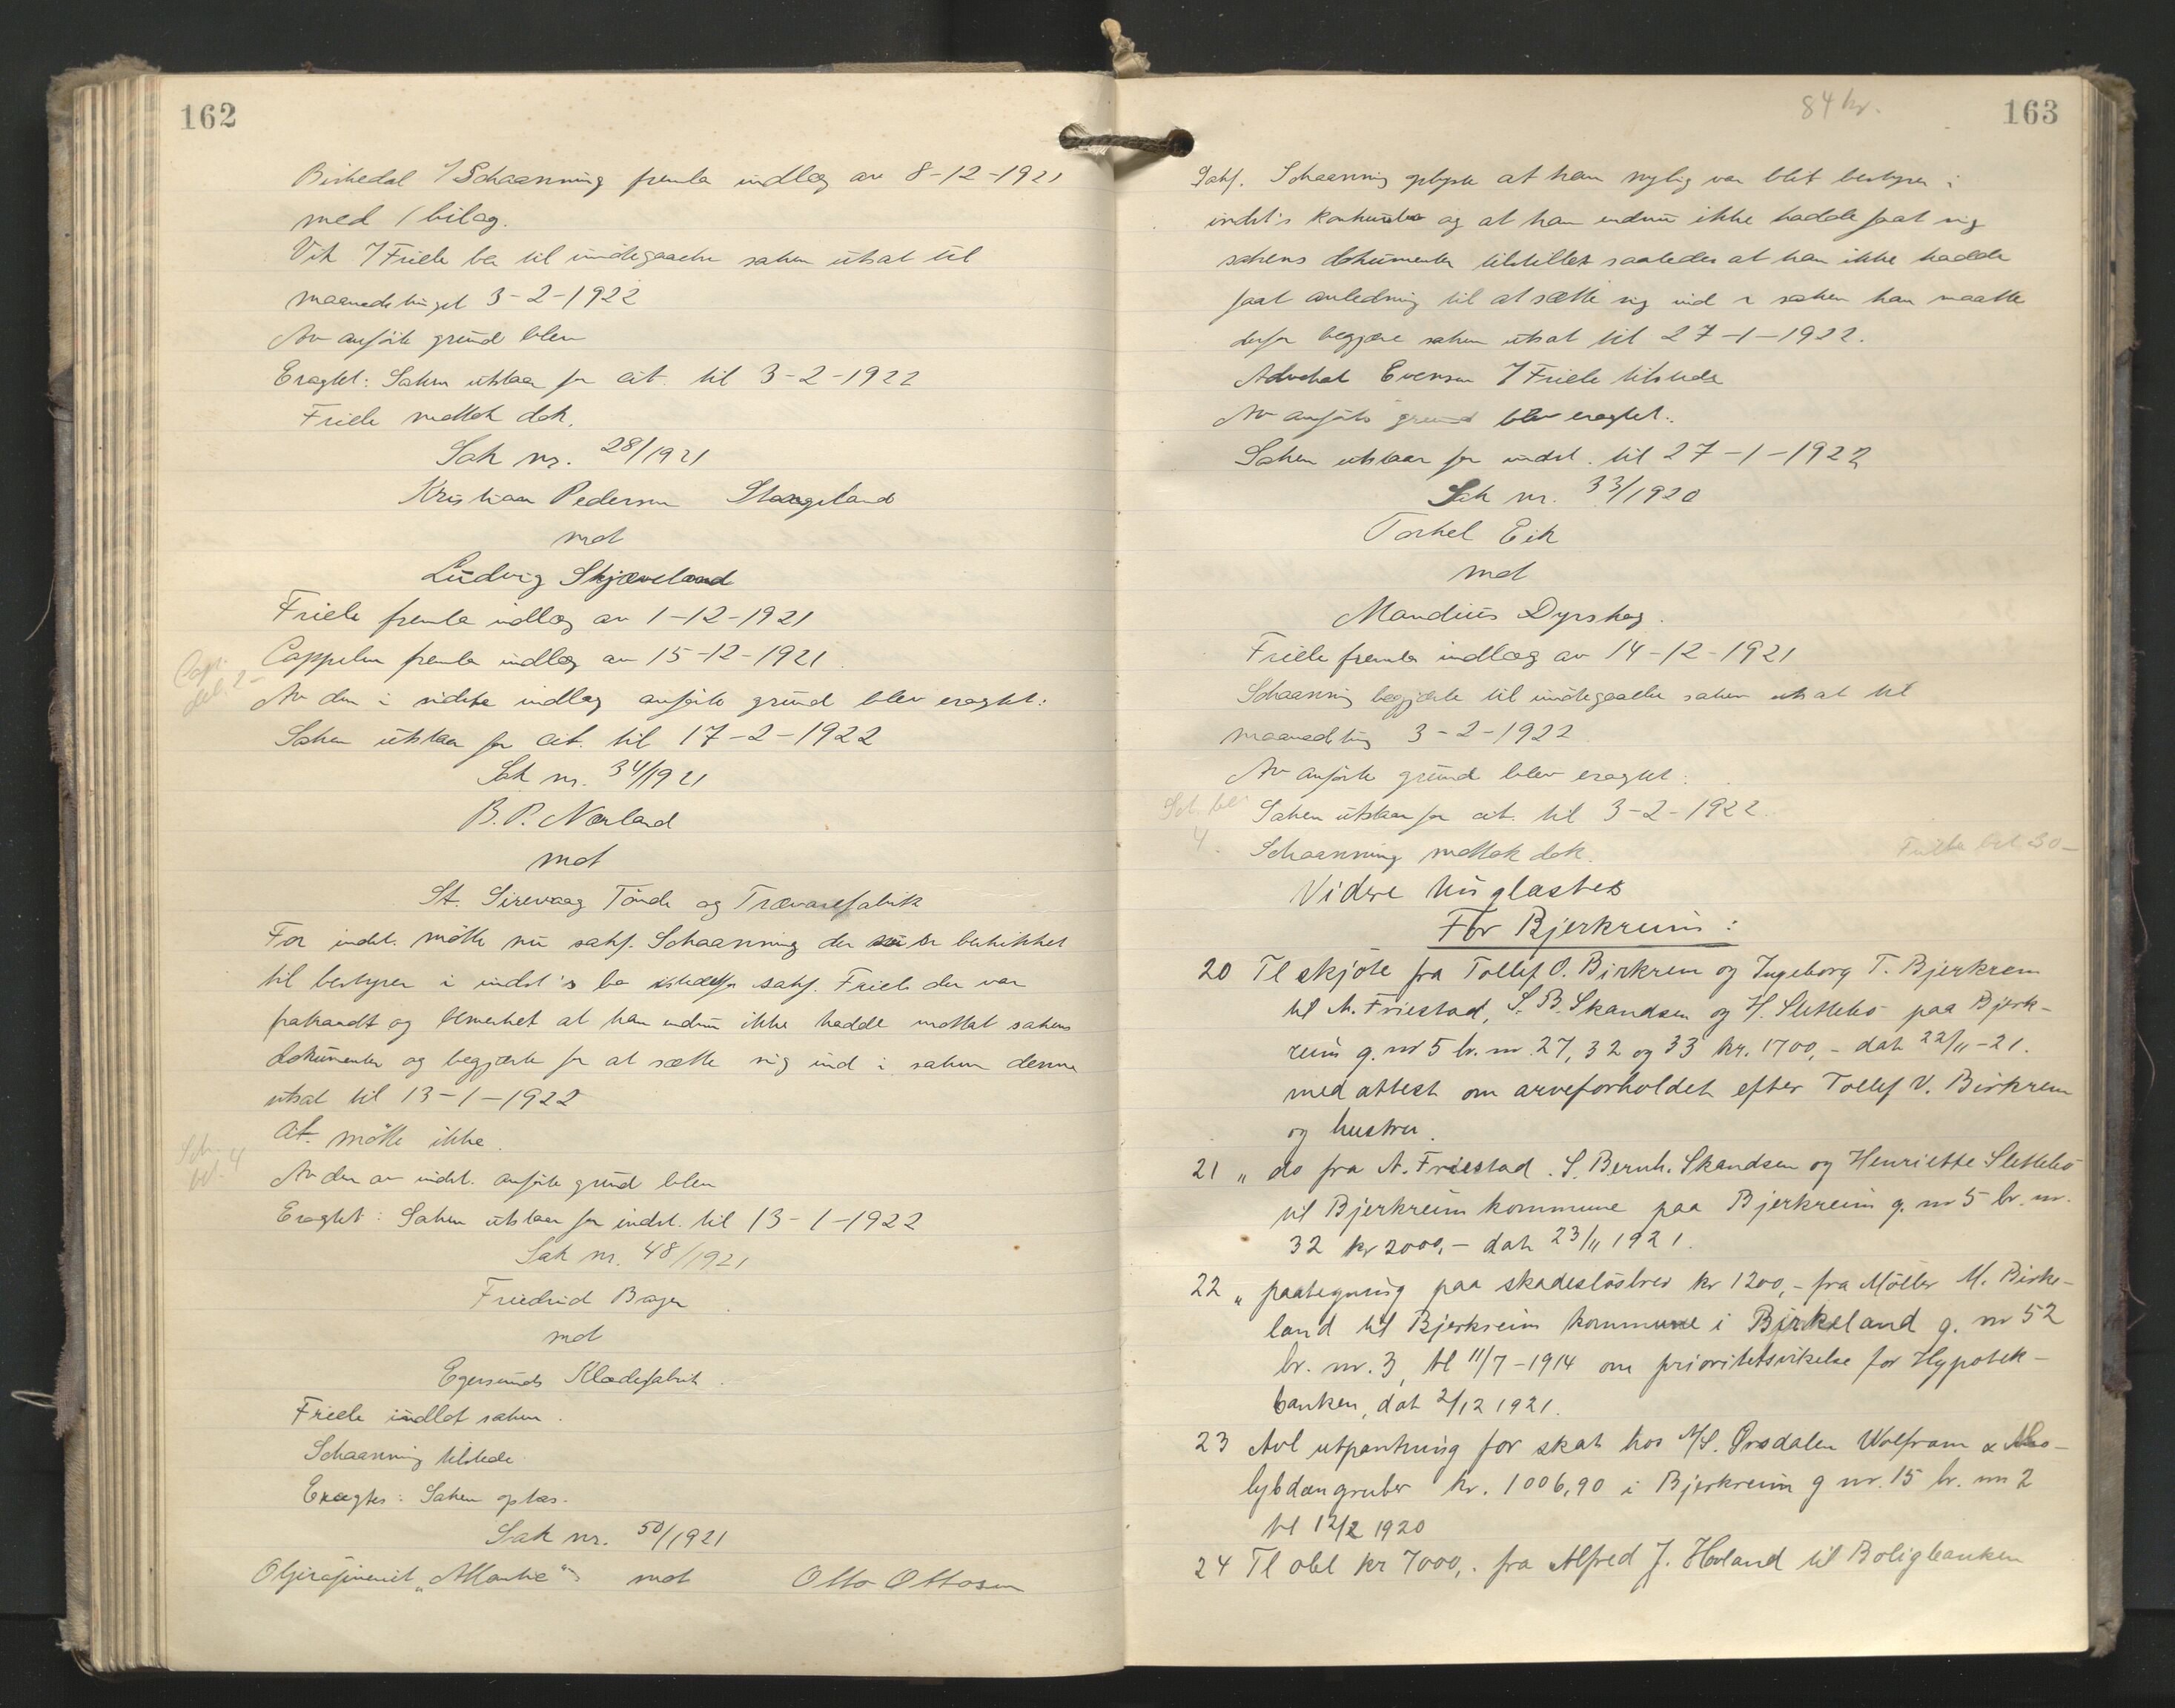 162
Birkedal f/Schaanning fremla indlæg av 8-12-1921
med 1 bilag.
Vik f/Friele ba til imötegaaelse saken utsat til
maanedstinget 3-2-1922
Av anförte grund blev
Eragtet: Saken utstaar for cit. til 3-2-1922
Friele mottok dok.
Sak nr. 28/1921
Kristian Pedersen Staageland
mot
Ludvig Skjæveland
Friele fremla indlæg av 1-12-1921
Cappelen fremla indlæg av 15-12-1921.
Av den i sidste indlæg anförte grund blev eragtet:
Saken utstaar for cit. til 17-2-1922
Sak nr. 34/1921
B. P. Nærland
mot
St. Sirevaag Tönde og Trævarefabrik
For indst. mötte nu sakf. Schaanning der er beskikket
til bestyrer i indst's bo istedetfor sakf. Friele der var
frakaldt og bemerket at han endnu ikke hadde mottat sakens
dokumenter og begjærte for at sætte sig ind i saken denne
utsat til 13-1-1922
Cit. mötte ikke.
Sch. bet. 4
Av den av indst. anförte grund blev
Eragtet: Saken utstaar for indst. til 13-1-1922
Sak nr. 48/1921
Friedrich Bayer
mot
Egersunds Klædefabrik.
Friele indlot saken.
Schaanning tilstede.
Eragtes: Saken optas.
Sak nr. 50/1921
Oljeraffineriet "Atlantic" mot Otto Ottosen
84 kr.
163
Sakf. Schaanning oplyste at han nylig var blit bestyrer i
indst's konkursbo og at han endnu ikke hadde faat sig
sakens dokumenter tilstillet saaledes at han ikke hadde
faat anledning til at sætte sig ind i saken han maatte
derfor begjære saken utsat til 27-1-1922.
Advokat Evensen f/Friele tilstede
Av anförte grund blev eragtet:
Saken utstaar for indst. til 27-1-1922
Sak nr. 33/1920
Torkel Eik
mot
Mandius Dyrskog.
Friele fremla indlæg av 14-12-1921
Schaanning begjærte til imötegaaelse saken utsat til
maanedsting 3-2-1922.
Av anförte grund blev eragtet:
Sch. bet. 4.
Saken utstaar for cit. til 3-2-1922.
Schaanning mottok dok.
Friele bet. 30-
Videre tinglæstes
For Bjerkreim:
20 Tl skjöte fra Tollef O. Birkrem og Ingeborg T. Bjerkrem
til A. Friestad, S. B. Skandsen og H. Slettebö paa Bjerk-
reim g. nr 5 br. nr. 27, 32 og 33 kr. 1700,- dat 22/11-21.
med attest om arveforholdet efter Tollef V. Birkrem
og hustru.
21 " do fra A. Friestad. S. Bernh. Skandsen og Henriette Slettebö
til Bjerkreim kommune paa Bjerkreim g. nr 5 br. nr.
32 kr 2000,- dat 23/11 1921.
22 " paategning paa skadeslösbrev kr 1200,- fra Möller M. Birke-
land til Bjerkreim kommune i Birkeland g. nr 52
br. nr. 3, tl 11/7-1914 om prioritetsvikelse for Hypotek-
banken, dat 2/12 1921.
23 Avl utpantning for skat hos A/S. Örsdalen Wolfram & Mo-
lybdængruber kr. 1006,90 i Bjerkreim g nr. 15 br. nr 2
tl 12/2 1920
24 Tl obl kr 7000,. fra Alfred J. Hovland til Boligbanken